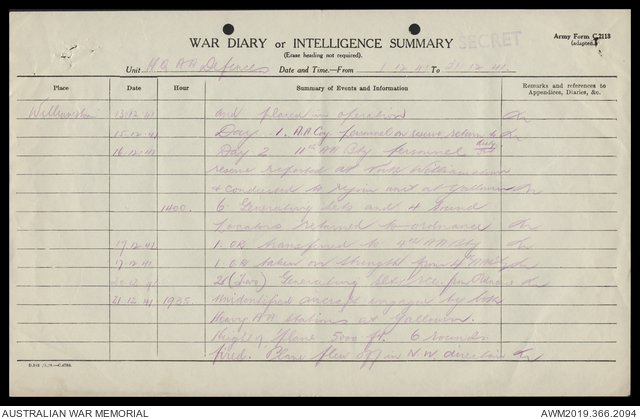 SECRET
Army Form C.2118
(adapted.)
WAR DIARY or INTELLIGENCE SUMMARY
(Erase heading not required).
Unit H.Q. A A Defences Date and Time.—From 1.12.41 To 31.12.41.
Place Date Hour Summary of Events and Information Remarks and references to Appendices, Diaries, &c.
Williamstown 13.12.41 and placed in operation
15.12.41 Day 1. A.A. Coy personnel on reserve return to
duty
16.12.41 Day 2. 11th AA Bty personnel
reserve reported at Fort Williamstown
& conducted to rejoin unit at
1400. 6 Generating Sets and 4 Sound
Locators returned to ordnance
17.12.41 1. OR transferred to AA Bty
17.12.41 1. OR taken on strength from AA Bty
2 (Two) Generating Sets from Ordnance
21.12.41 1935. Unidentified aircraft engaged by both
Heavy AA stations at
Height of plane 5000 ft. 6 rounds
fired. Plane flew off in N.W. direction
AUSTRALIAN WAR MEMORIAL AWM2019.366.2094